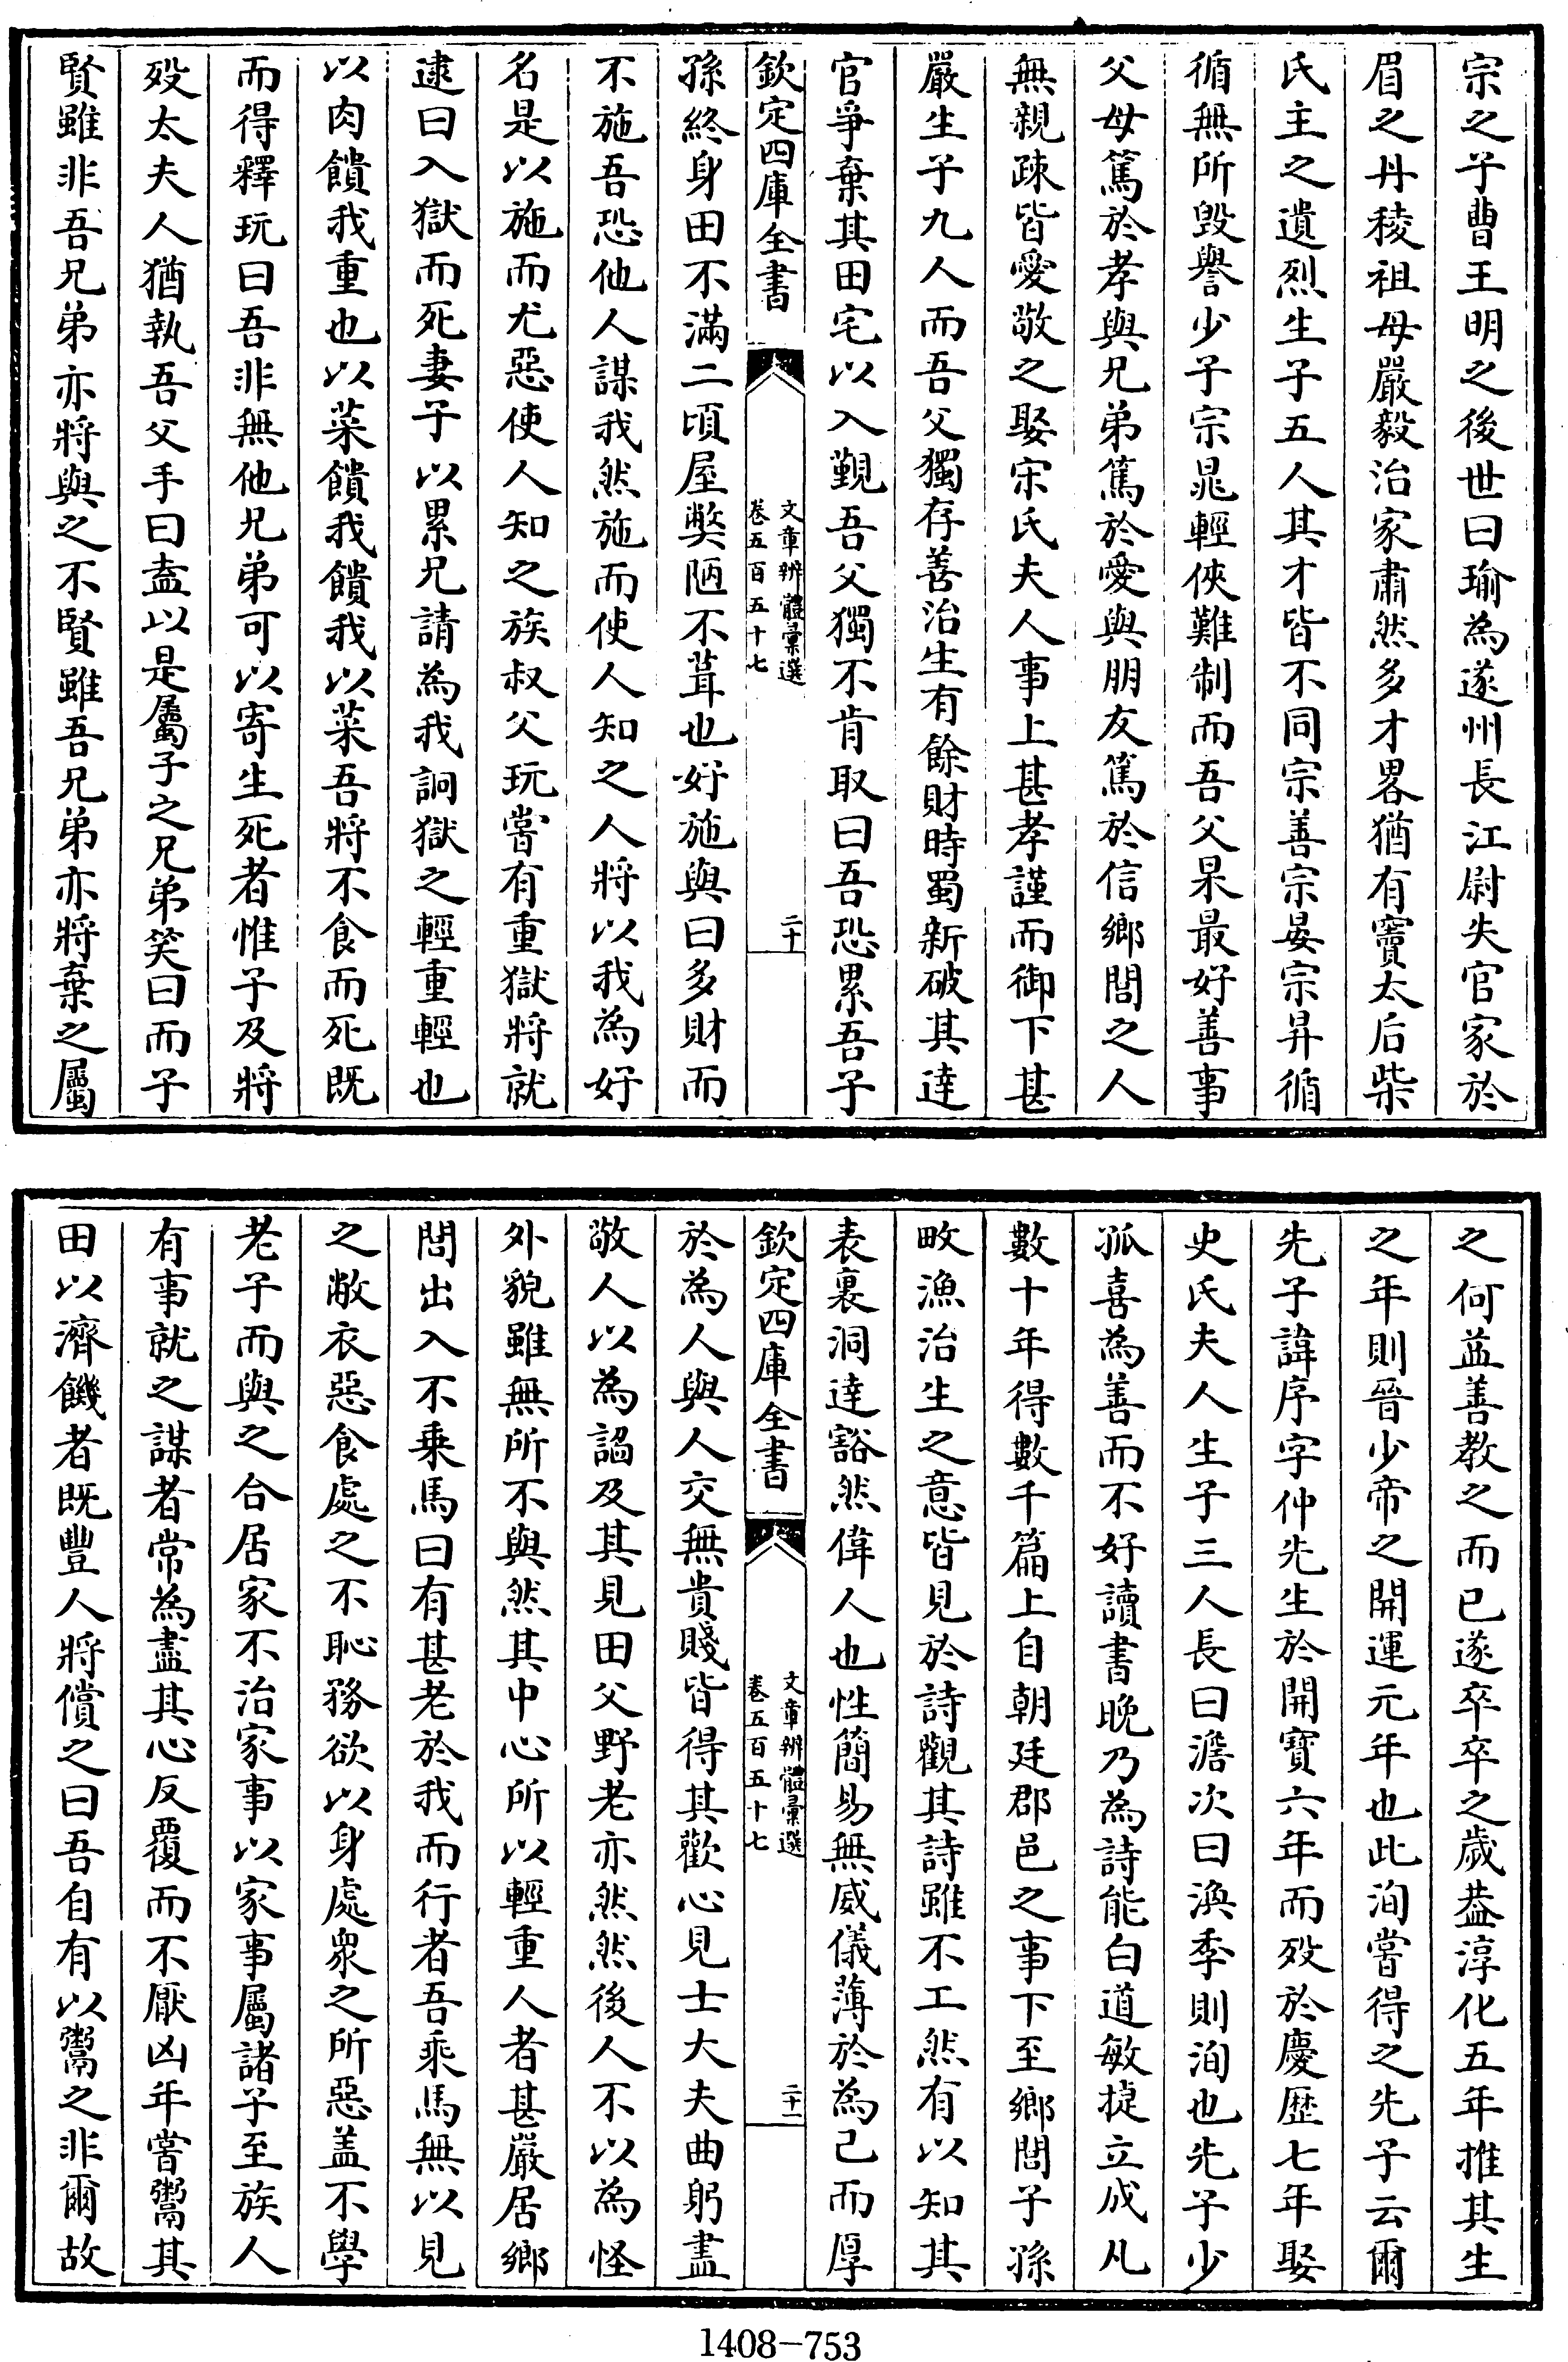 宗之子曹王明之後世曰瑜為遂州長江尉失官家於
眉之丹稜祖母嚴毅治家肅然多才畧猶有竇太后柴
氏主之遺烈生子五人其才皆不同宗善宗晏宗昇循
循無所毀譽少子宗晁輕俠難制而吾父杲最好善事
父母篤於孝與兄弟篤於愛與朋友篤於信鄉閭之人
無親疎皆愛敬之娶宋氏夫人事上甚孝謹而御下甚
嚴生子九人而吾父獨存善治生有餘財時蜀新破其達
官爭棄其田宅以入覲吾父獨不肯取曰吾恐累吾子
欽定四庫全書
文章辨體彙選
卷五百五十七
二十
孫終身田不滿二頃屋獘陋不葺也好施與曰多財而
不施吾恐他人謀我然施而使人知之人將以我為好
名是以施而尤惡使人知之族叔父玩嘗有重獄將就
逮曰入獄而死妻子以累兄請為我詗獄之輕重輕也
以肉饋我重也以菜饋我饋我以菜吾將不食而死既
而得釋玩曰吾非無他兄弟可以寄生死者惟子及將
歿太夫人猶執吾父手曰盍以是屬子之兄弟笑曰而子
賢雖非吾兄弟亦將與之不賢雖吾兄弟亦將棄之屬
之何益善教之而已遂卒卒之歲葢淳化五年推其生
之年則晉少帝之開運元年也此洵嘗得之先子云爾
先子諱序字仲先生於開寶六年而歿於慶歷七年娶
史氏夫人生子三人長曰澹次曰渙季則洵也先子少
孤喜為善而不好讀書晚乃為詩能白道敏捷立成凡
數十年得數千篇上自朝廷郡邑之事下至鄉閭子孫
畋漁治生之意皆見於詩觀其詩雖不工然有以知其
表裏洞達豁然偉人也性簡易無威儀薄於為己而厚
欽定四庫全書
文章辨體彙選
卷五百五十七
二十一
於為人與人交無貴賤皆得其歡心見士大夫曲躬盡
敬人以為謟及其見田父野老亦然然後人不以為怪
外貌雖無所不與然其中心所以輕重人者甚嚴居鄉
閭出入不乘馬曰有甚老於我而行者吾乘馬無以見
之敝衣惡食處之不恥務欲以身處衆之所惡盖不學
老子而與之合居家不治家事以家事屬諸子至族人
有事就之謀者常為盡其心反覆而不厭凶年嘗鬻其
田以濟饑者既豐人將償之曰吾自有以鬻之非爾故
1408-753